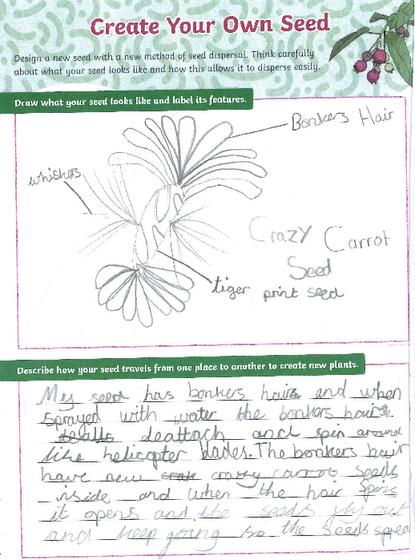 Create Your Own Seed
Design a new seed with a new method of seed dispersal. Think carefully
about what your seed looks like and how this allows it to disperse easily.
Draw what your seed looks like and label its features.
Bonkers Hair
whiskers
Crazy Carrot
Seed
tiger print seed
Describe how your seed travels from one place to another to create new plants.
My seed has bonkers hairs and when
sprayed with water the bonkers hairs
deattach and spin around
like helicopter blades. The bonkers hair
have new crazy carrot seeds
inside and when the hair spins
it opens and the seeds fly out
and keep going so the seeds spread